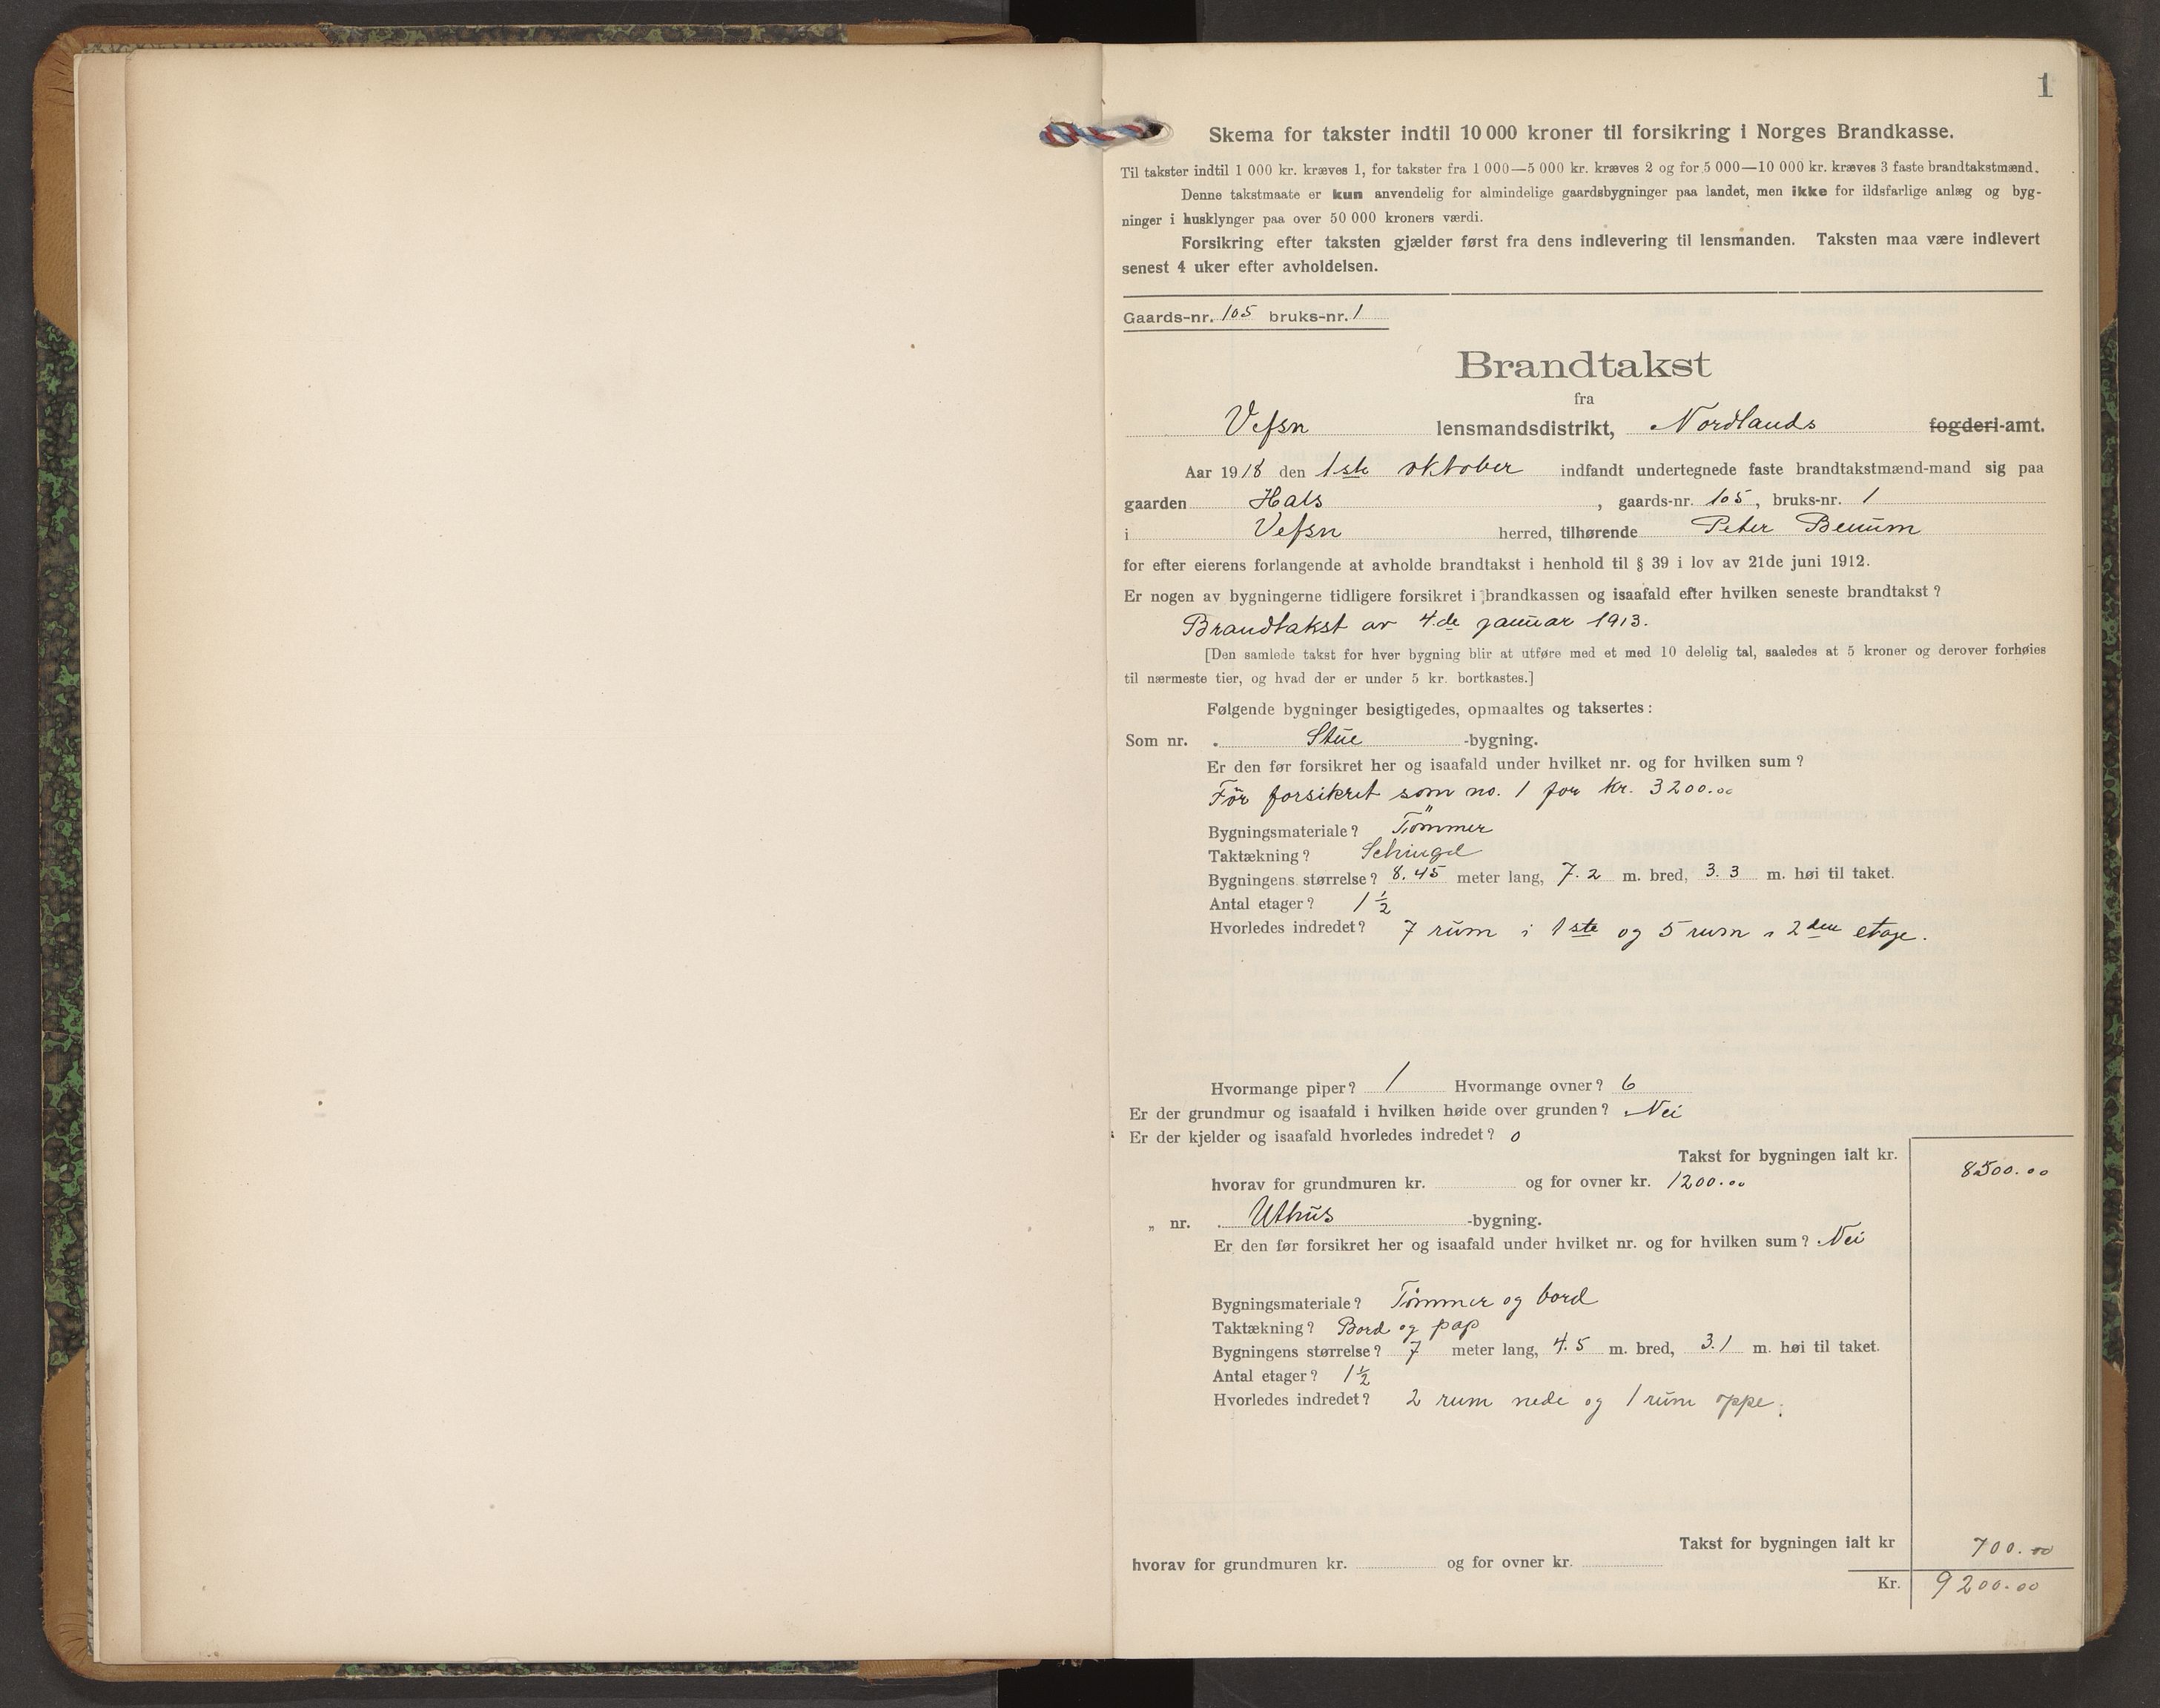 1
Skema for takster indtil 10 000 kroner til forsikring i Norges Brandkasse.
Til takster indtil 1 000 kr. kræves 1, for takster fra 1 000—5 000 kr. kræves 2 og for 5 000—10 000 kr. kræves 3 faste brandtakstmænd.
Denne takstmaate er kun anvendelig for almindelige gaardsbygninger paa landet, men ikke for ildsfarlige anlæg og byg-
ninger i husklynger paa over 50 000 kroners værdi.
Forsikring efter taksten gjælder først fra dens indlevering til lensmanden. Taksten maa være indlevert
senest 4 uker efter avholdelsen.
Gaards-nr. 105 bruks-nr. 1
Brandtakst
fra
Vefsn lensmandsdistrikt, Nordlands fogderi-amt.
Aar 1918 den 1ste oktober indfandt undertegnede faste brandtakstmænd-mand sig paa
gaarden Hals, gaards-nr. 105, bruks-nr. 1
i Vefsn herred, tilhørende Peter Benum
for efter eierens forlangende at avholde brandtakst i henhold til § 39 i lov av 21de juni 1912.
Er nogen av bygningerne tidligere forsikret i brandkassen og isaafald efter hvilken seneste brandtakst?
Brandtakst av 4.de januar 1913.
[Den samlede takst for hver bygning blir at utføre med et med 10 delelig tal, saaledes at 5 kroner og derover forhøies
til nærmeste tier, og hvad der er under 5 kr. bortkastes.]
Følgende bygninger besigtigedes, opmaaltes og taksertes:
Som nr. . Stue -bygning.
Er den før forsikret her og isaafald under hvilket nr. og for hvilken sum?
För forsikret som no. 1 for kr. 3200.00
Bygningsmateriale? Tömmer
Taktækning? Schingel
Bygningens størrelse? 8.45 meter lang, 7.2 m. bred, 3.3 m. høi til taket.
Antal etager? 1 1/2
Hvorledes indredet? 7 rum i 1ste og 5 rum i 2den etage.
Hvormange piper? 1 Hvormange ovner? 6
Er der grundmur og isaafald i hvilken høide over grunden? Nei
Er der kjelder og isaafald hvorledes indredet? 0
Takst for bygningen ialt kr. 8500.00
hvorav for grundmuren kr. og for ovner kr. 1200.00
„ nr. . Uthus -bygning.
Er den før forsikret her og isaafald under hvilket nr. og for hvilken sum? Nei
Bygningsmateriale? Tömmer og bord
Taktækning? Bord og pap
Bygningens størrelse? 7 meter lang, 4.5 m. bred, 3.1 m. høi til taket.
Antal etager? 1 1/2
Hvorledes indredet? 2 rum nede og 1 rum oppe.
Takst for bygningen ialt kr 700.00
hvorav for grundmuren kr. og for ovner kr.
Kr. 9200.00